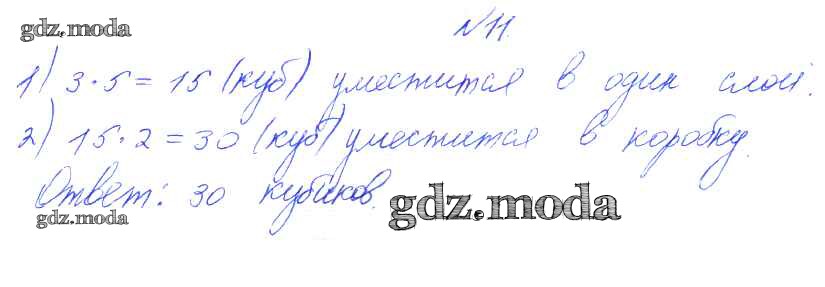 gdz.moda
№ 11.
1) 3·5 = 15 (куб) уместится в один слой.
2) 15·2 = 30 (куб) уместится в коробку.
Ответ: 30 кубиков.
gdz.moda
gdz.moda